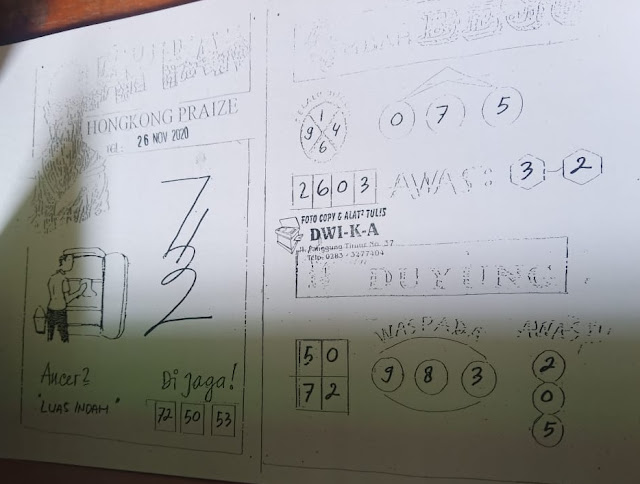 HONGKONG PRAIZE
TGL : 26 NOV 2020
7
4
2
Ancer2
"LUAS INDAH"
Di jaga!
72 50 53
MBAH
1
9 4
6
0 7 5
2 6 0 3
AWAS :
3 - 2
FOTO COPY & ALAT² TULIS
DWI-K-A
Jl. Panggung Timur No. 37
Telp. 0283 - 3277404
DUYUNG
5 0
7 2
WASPADA
9 8 3
AWAS
2
0
5